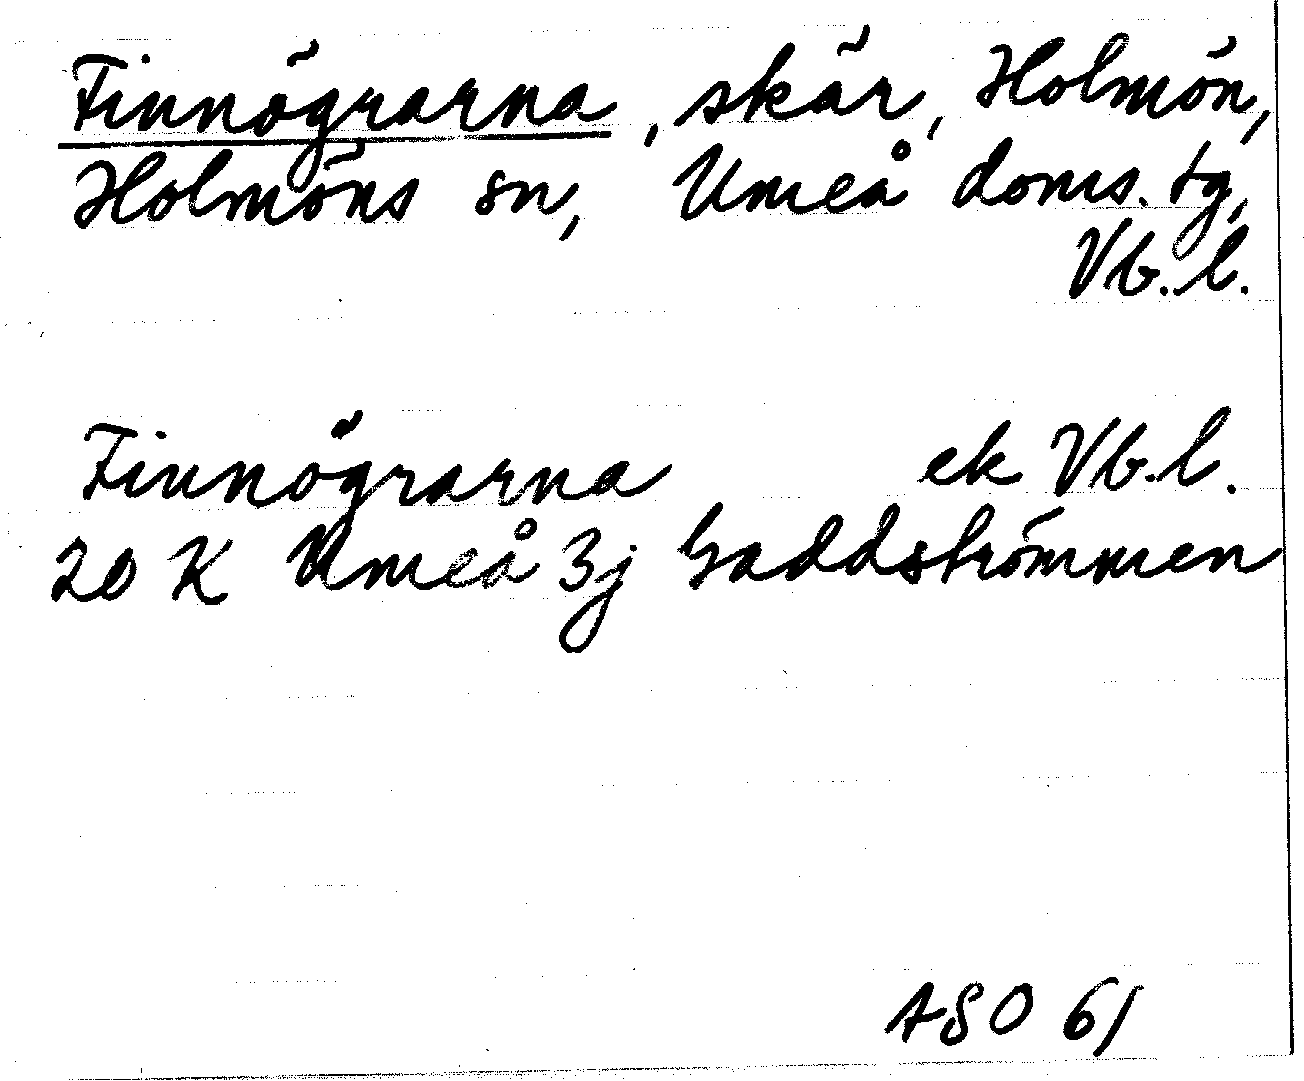 Finnögrarna, skär, Holmön,
Holmöns sn, Umeå doms. tg,
Vb. l.
Finnögrarna ek Vb. l.
20 K Umeå 3j Gaddströmmen
ASO 61